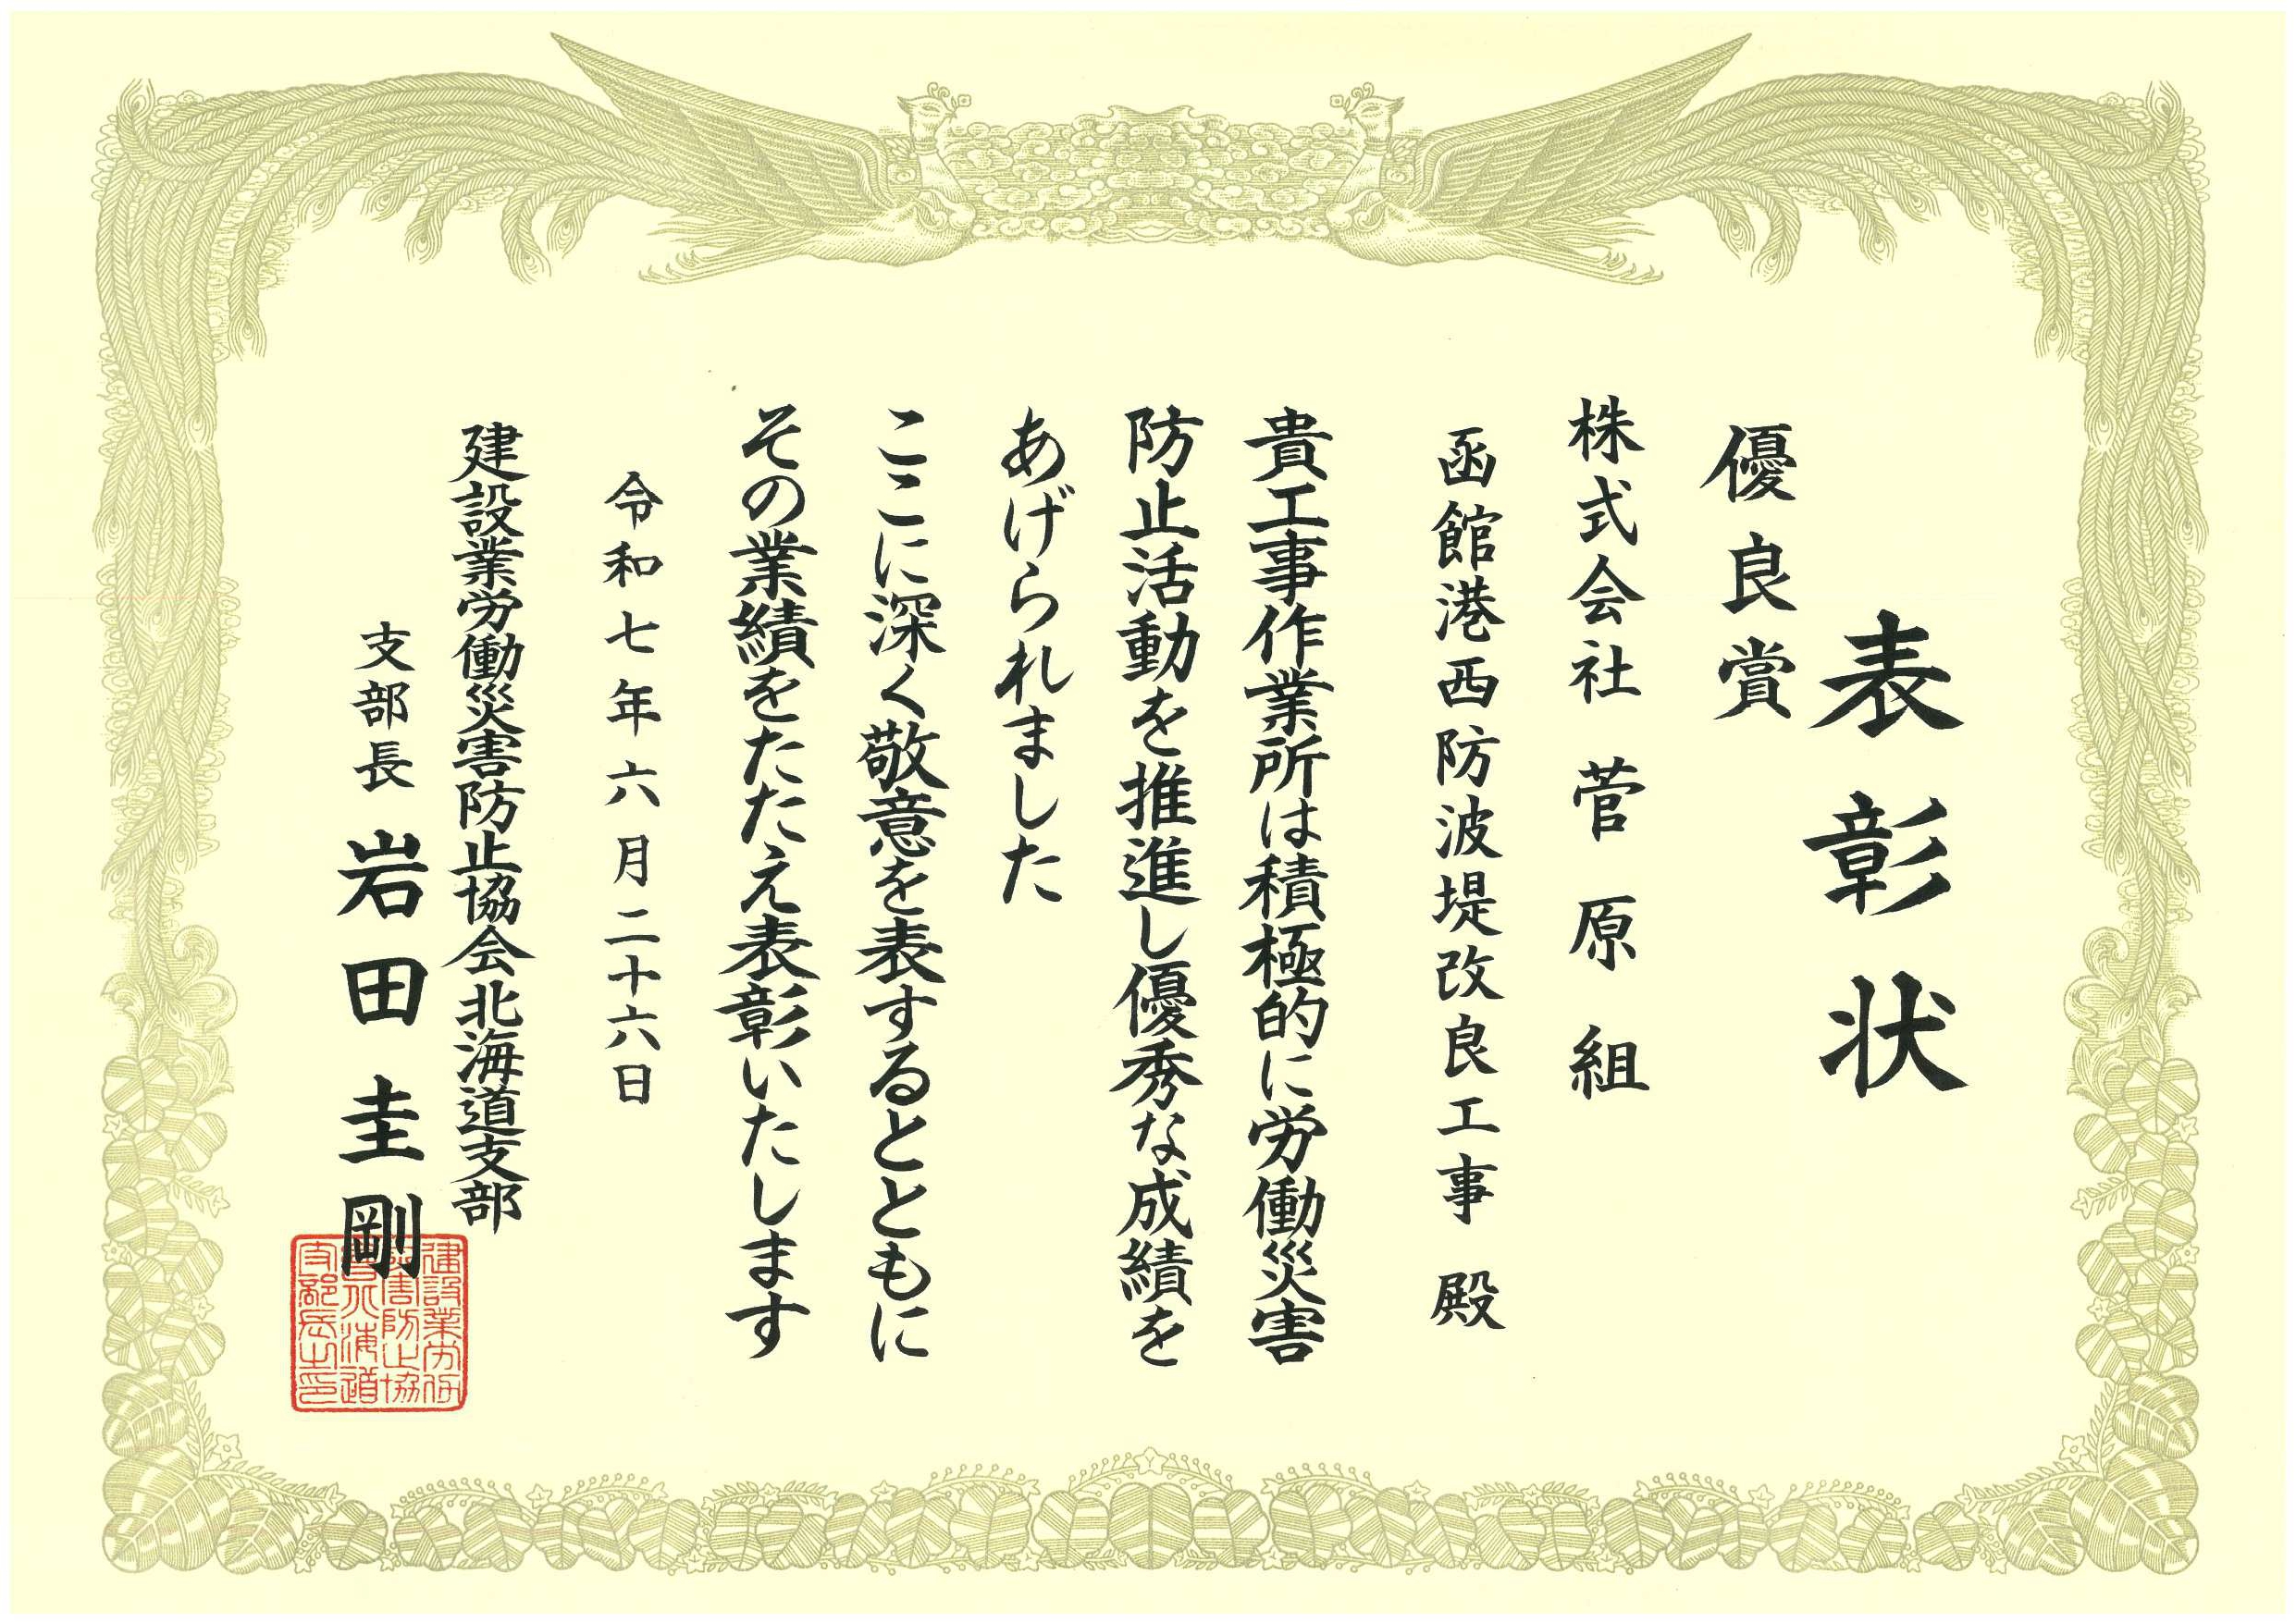 表彰状
優良賞
株式会社 菅原組
函館港西防波堤改良工事 殿
貴工事作業所は積極的に労働災害
防止活動を推進し優秀な成績を
あげられました
ここに深く敬意を表するとともに
その業績をたたえ表彰いたします
令和七年六月二十六日
建設業労働災害防止協会北海道支部
支部長 岩田圭剛